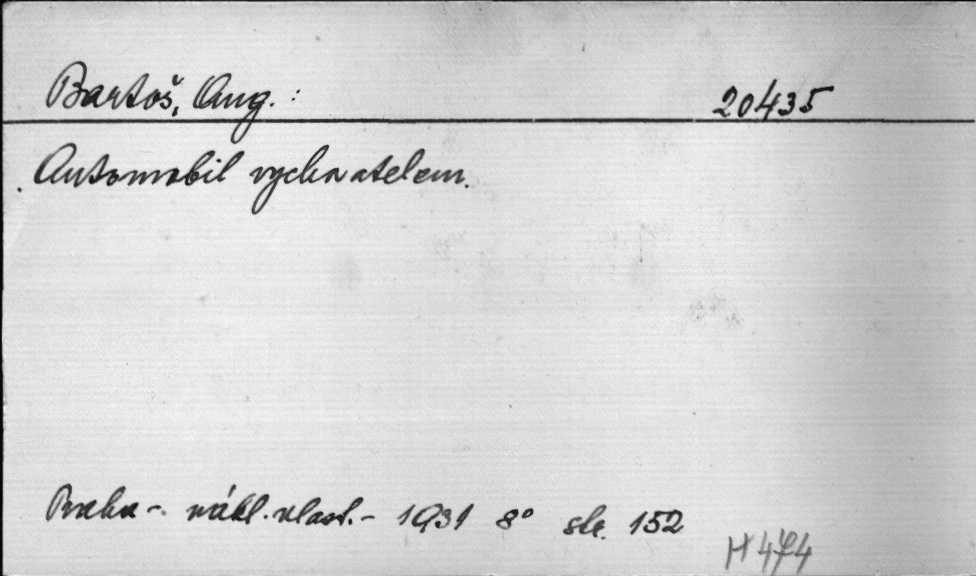 Bartoš, Aug. : 20435
Automobil vychovatelem.
Praha -. nákl. vlast. - 1931 8° str. 152
H 474